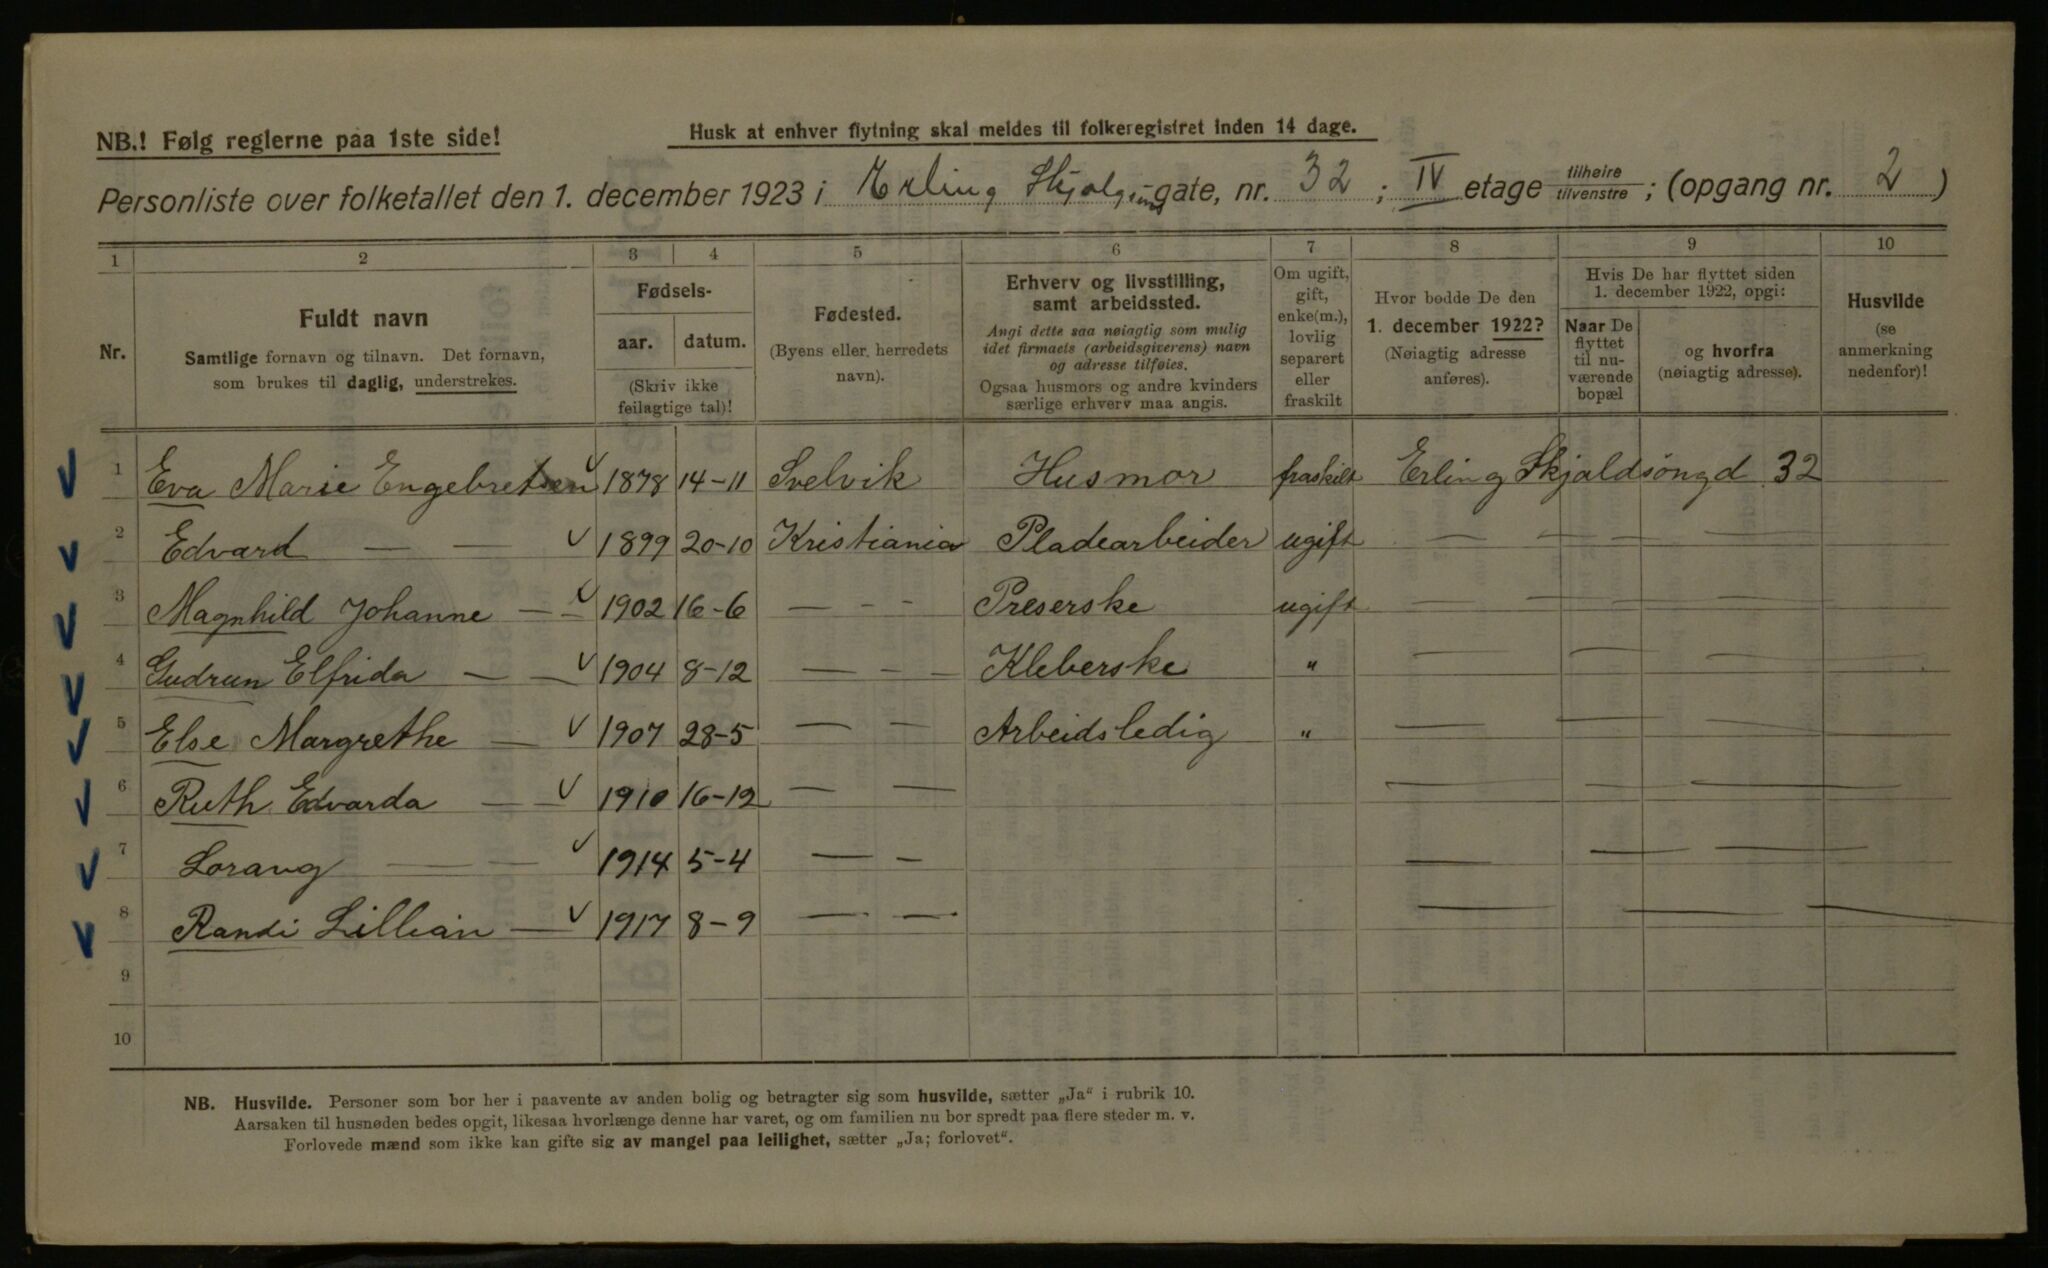 NB.! Følg reglerne paa 1ste side!
Husk at enhver flytning skal meldes til folkeregistret inden 14 dage.
Personliste over folketallet den 1. december 1923 i Erling Skjalgsons gate, nr. 32 ; IV etage tilhøire / tilvenstre ; (opgang nr. 2 )
1 2 3 4 5 6 7 8 9 10
Nr.
Fuldt navn
Samtlige fornavn og tilnavn. Det fornavn,
som brukes til daglig, understrekes.
Fødsels-
aar. datum.
(Skriv ikke
feilagtige tal)!
Fødested.
(Byens eller herredets
navn).
Erhverv og livsstilling,
samt arbeidssted.
Angi dette saa nøiagtig som mulig
idet firmaets (arbeidsgiverens) navn
og adresse tilføies.
Ogsaa husmors og andre kvinders
særlige erhverv maa angis.
Om ugift,
gift,
enke(m.),
lovlig
separert
eller
fraskilt
Hvor bodde De den
1. december 1922?
(Nøiagtig adresse
anføres).
Hvis De har flyttet siden
1. december 1922, opgi:
Naar De
flyttet
til nu-
værende
bopæl
og hvorfra
(nøiagtig adresse).
Husvilde
(se
anmerkning
nedenfor)!
1 Eva Marie Engebretsen 1878 14-11 Svelvik Husmor fraskilt Erling Skjaldsöngd 32
2 Edvard — — 1899 20-10 Kristiania Pladearbeider ugift — — — —
3 Magnhild Johanne — — 1902 16-6 — - - Preserske ugift — — — —
4 Gudrun Elfrida — — 1904 8-12 — — Kleberske " — — —
5 Else Margrethe — 1907 28-5 — — Arbeidsledig " — — —
6 Ruth Edvarda — — 1910 16-12 — — — — —
7 Lorang — — 1914 5-4 — — — — —
8 Randi Lillian — 1917 8-9 — — — — —
9
10
NB. Husvilde. Personer som bor her i paavente av anden bolig og betragter sig som husvilde, sætter „Ja“ i rubrik 10.
Aarsaken til husnøden bedes opgit, likesaa hvorlænge denne har varet, og om familien nu bor spredt paa flere steder m. v.
Forlovede mænd som ikke kan gifte sig av mangel paa leilighet, sætter „Ja; forlovet“.